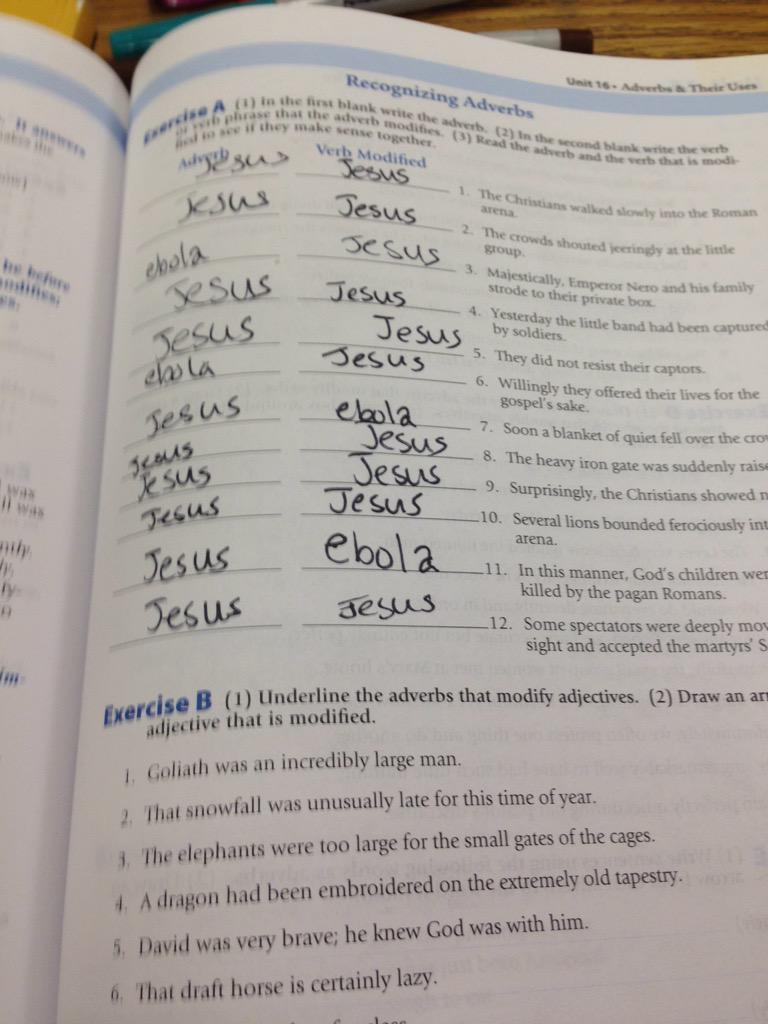 Unit 16 • Adverbs & Their Uses
Recognizing Adverbs
It answers
Exercise A (1) In the first blank write the adverb. (2) In the second blank write the verb
or verb phrase that the adverb modifies. (3) Read the adverb and the verb that is modi-
fied to see if they make sense together.
Adverb Verb Modified
Jesus Jesus 1. The Christians walked slowly into the Roman
arena.
Jesus Jesus 2. The crowds shouted jeeringly at the little
group.
ebola Jesus 3. Majestically, Emperor Nero and his family
strode to their private box.
Jesus Jesus 4. Yesterday the little band had been captured
by soldiers.
Jesus Jesus 5. They did not resist their captors.
ebola Jesus 6. Willingly they offered their lives for the
gospel's sake.
Jesus ebola 7. Soon a blanket of quiet fell over the cro
Jesus Jesus 8. The heavy iron gate was suddenly raise
Jesus Jesus 9. Surprisingly, the Christians showed n
Jesus Jesus 10. Several lions bounded ferociously int
arena.
Jesus ebola 11. In this manner, God's children wer
killed by the pagan Romans.
Jesus Jesus 12. Some spectators were deeply mov
sight and accepted the martyrs' S
Exercise B (1) Underline the adverbs that modify adjectives. (2) Draw an arr
adjective that is modified.
1. Goliath was an incredibly large man.
2. That snowfall was unusually late for this time of year.
3. The elephants were too large for the small gates of the cages.
4. A dragon had been embroidered on the extremely old tapestry.
5. David was very brave; he knew God was with him.
6. That draft horse is certainly lazy.